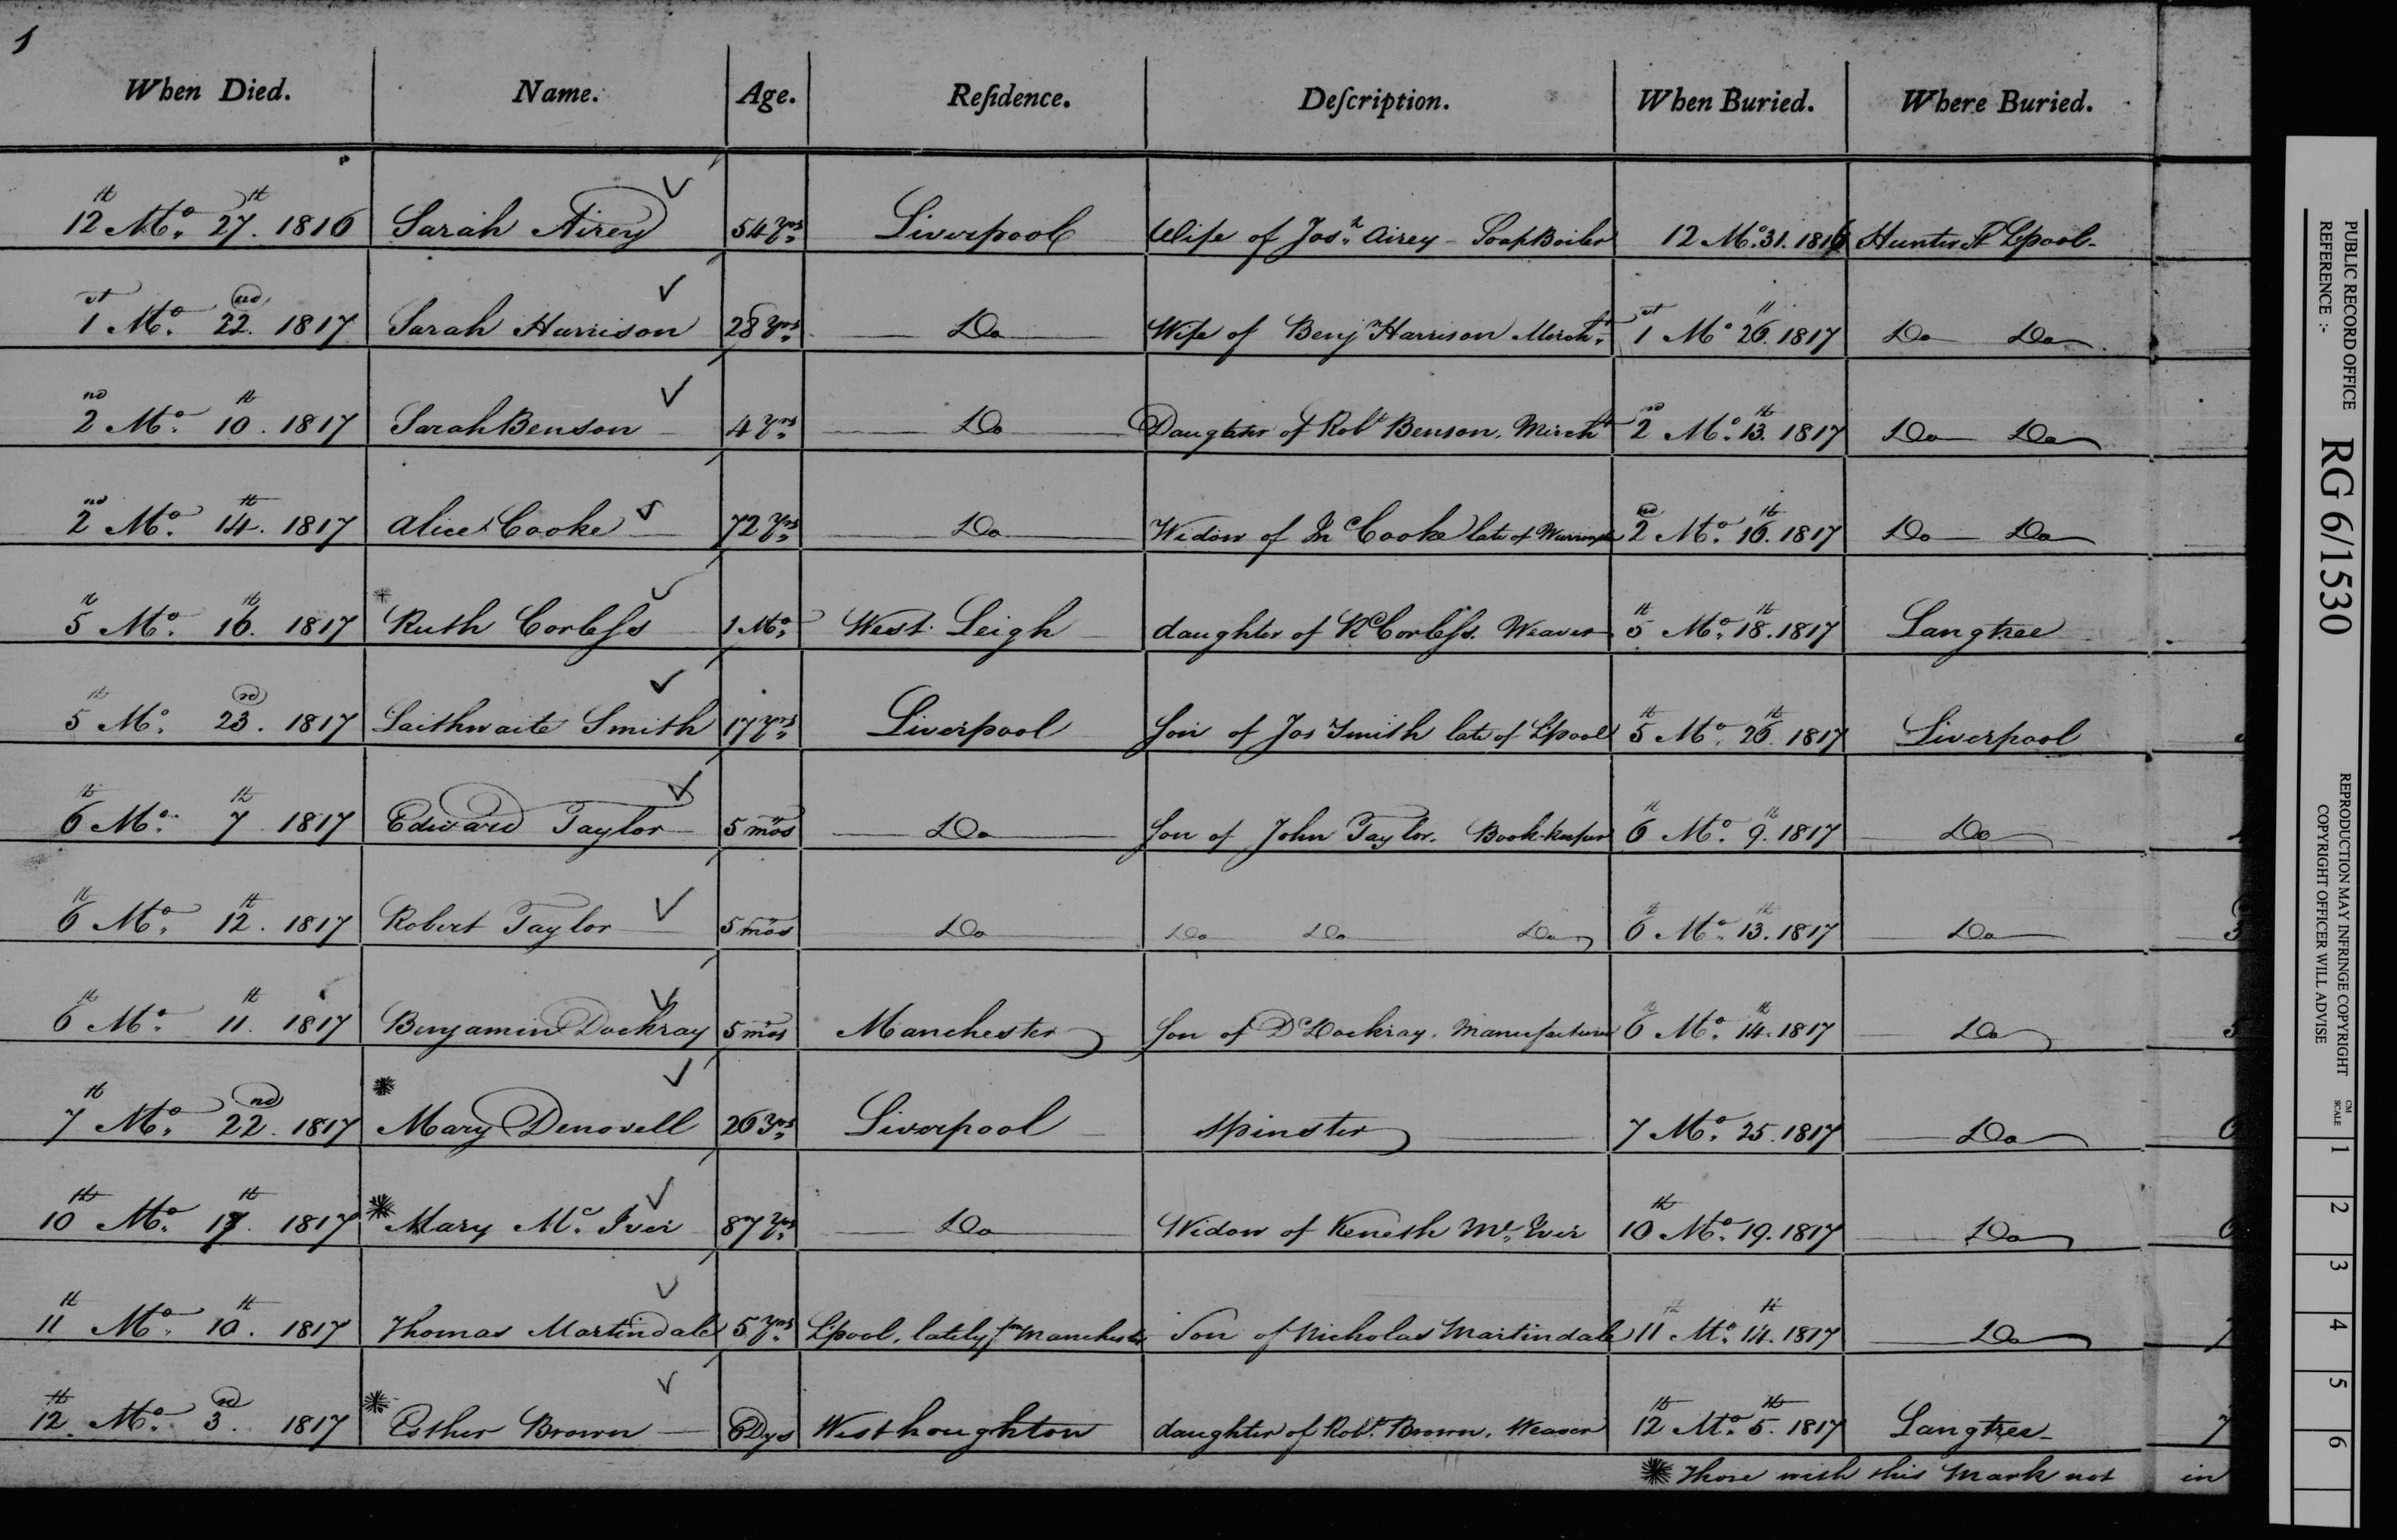 1
When Died. Name. Age. Reſidence. Deſcription. When Buried. Where Buried.
12th Mo. 27th. 1816 Sarah Airey 54 Yrs. Liverpool Wife of Josh. Airey - Soap Boiler 12 Mo. 31. 1816 Hunter St Lpool-
1st Mo. 22nd. 1817 Sarah Harrison 28 Yrs. Do Wife of Benjn Harrison Mercht. 1st Mo 26. 1817 Do Do
2nd Mo. 10th. 1817 Sarah Benson 4 Yrs. Do Daughter of Robt Benson, Mercht 2nd Mo. 13th. 1817 Do Do
2nd Mo. 14th. 1817 Alice Cooke 72 Yrs. Do Widow of Jn Cooke late of 2nd Mo. 16th. 1817 Do Do
5th Mo. 16th. 1817 * Ruth Corleſs 1 Mo. West Leigh daughter of Rd Corleſs. Weaver 5th Mo. 18th. 1817 Langtree
5th Mo. 23rd. 1817 Laithwaite Smith 17 Yrs. Liverpool Son of Jos Smith late of Lpool 5th Mo. 26th. 1817 Liverpool
6th Mo. 7th 1817 Edward Taylor 5 mos Do Son of John Taylor. Book-keeper 6th Mo. 9th. 1817 Do
6th Mo. 12th. 1817 Robert Taylor 5 mos Do Do Do Do 6th Mo. 13th. 1817 Do
6th Mo. 11th. 1817 Benjamin Dockray 5 mos Manchester Son of Dd Dockray. Manufacturer 6th Mo. 14th. 1817 Do
7th Mo. 22nd. 1817 * Mary Denovell 26 Yrs. Liverpool Spinster 7 Mo. 25. 1817 Do
10th Mo. 17th. 1817 * Mary Mc. Iver 87 Yrs. Do Widow of Keneth Mc. Iver 10th Mo. 19. 1817 Do
11th Mo. 10th. 1817 Thomas Martindale 5 Yrs. Lpool, lately fm Manchester Son of Nicholas Martindale 11th Mo. 14th. 1817 Do
12th Mo. 3rd. 1817 * Esther Brown Dys Westhoughton daughter of Robt. Brown. Weaver 12th Mo. 5th. 1817 Langtree
* Those with this Mark not in
PUBLIC RECORD OFFICE
REFERENCE :-
RG 6/1530
REPRODUCTION MAY INFRINGE COPYRIGHT
COPYRIGHT OFFICER WILL ADVISE
CM
SCALE
1 2 3 4 5 6